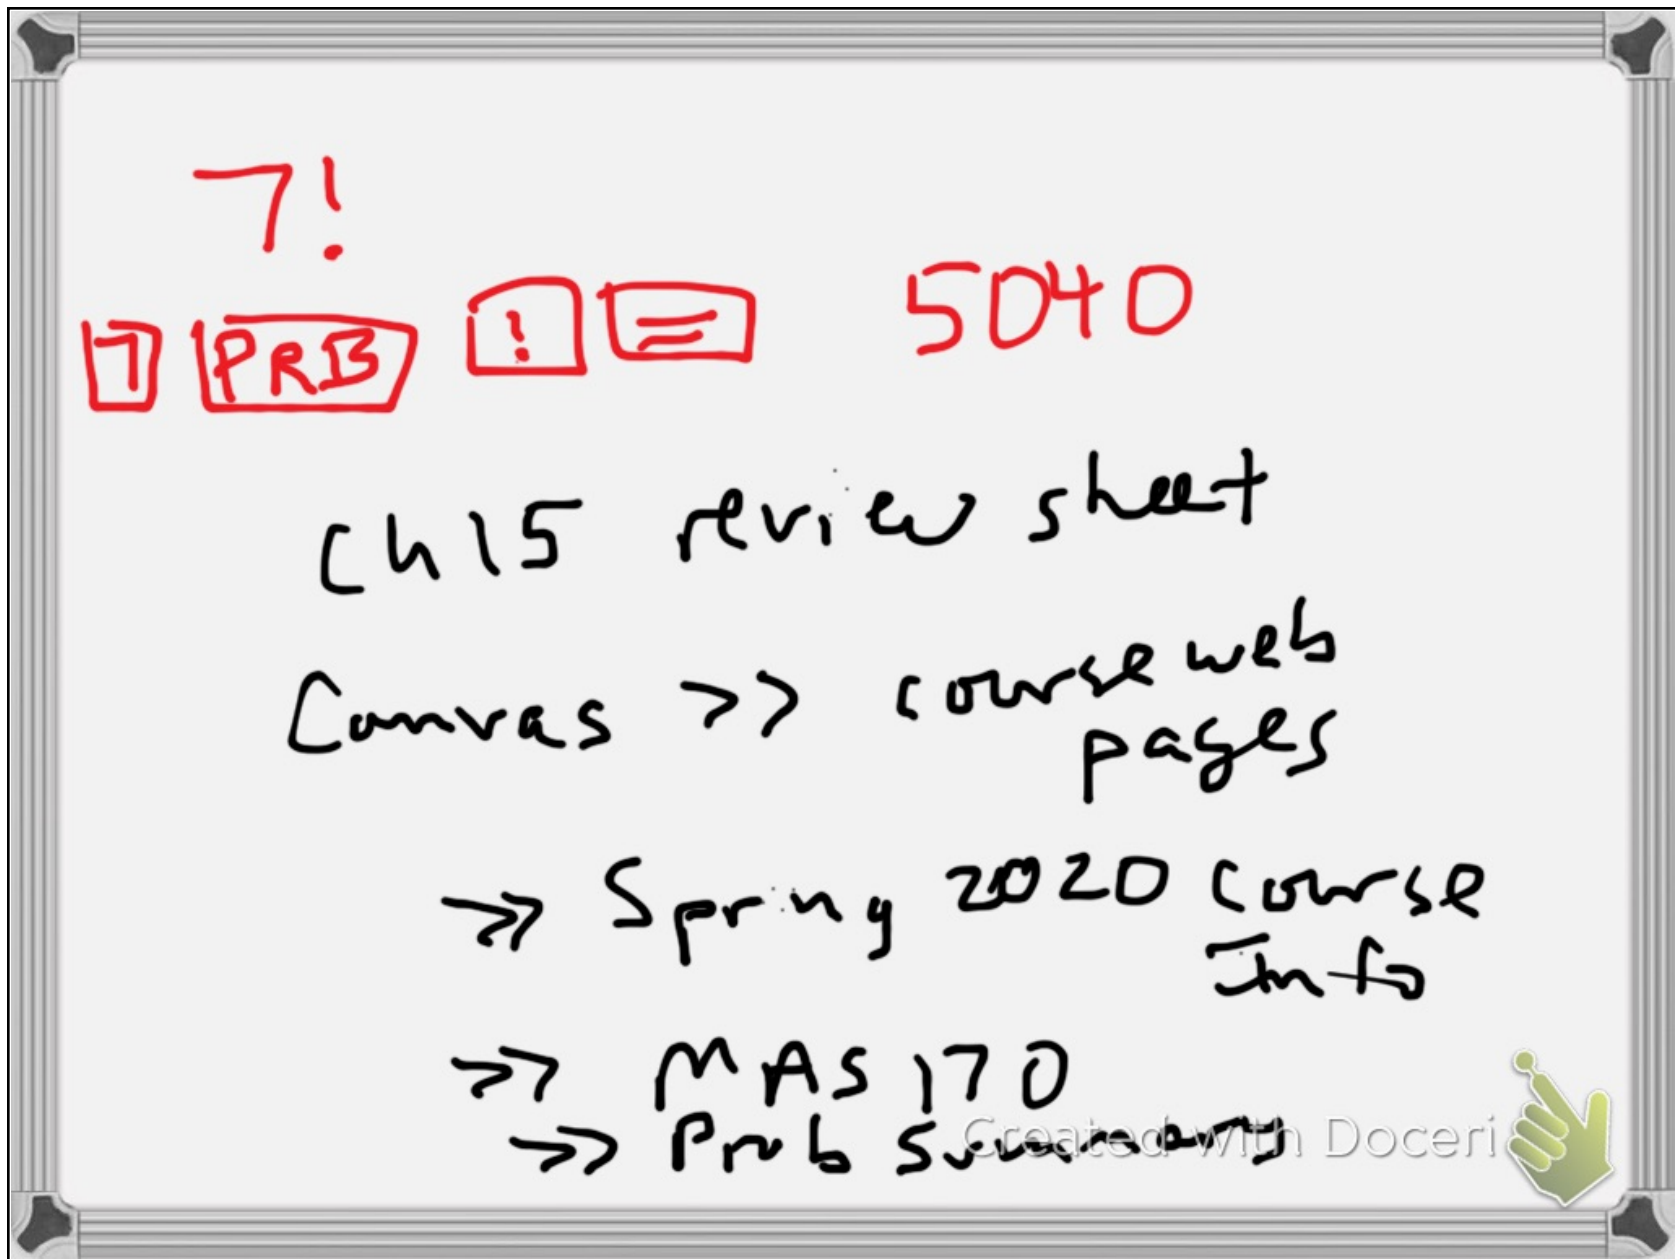 7!
7 PRB ! = 5040
Ch 15 review sheet
Canvas >> course web
pages
>> Spring 2020 Course
Info
>> MAS 170
>> Prob Summary
Created with Doceri